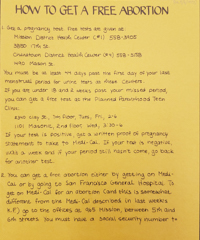 HOW TO GET A FREE ABORTION
1. Get a pregnancy test. Free tests are given at
Mission District Health Center (#1) 558-3905
3850 17th St.
Chinatown District Health Center (#4) 558-3158
1490 Mason St.
You must be at least 44 days past the first day of your last
menstrual period for urine tests at these centers.
If you are under 18 and 2 weeks past your missed period,
you can get a free test at the Planned Parenthood Teen
Clinic:
2340 Clay St., 7th Floor, Tues, Fri, 2-5
1101 Masonic, 2nd Floor, Wed, 3:30-6
If your test is positive, get a written proof of pregnancy
statement to take to Medi-Cal. If your test is negative,
wait a week and if your period still hasn't come, go back
for another test.
2. You can get a free abortion either by getting on Medi-
Cal or by going to San Francisco General Hospital. To
get on Medi-Cal for an abortion (and this is somewhat
different from the Medi-Cal described in last week's
K.F.) go to the offices at 965 Mission, between 5th and
6th streets. You must have a social security number to